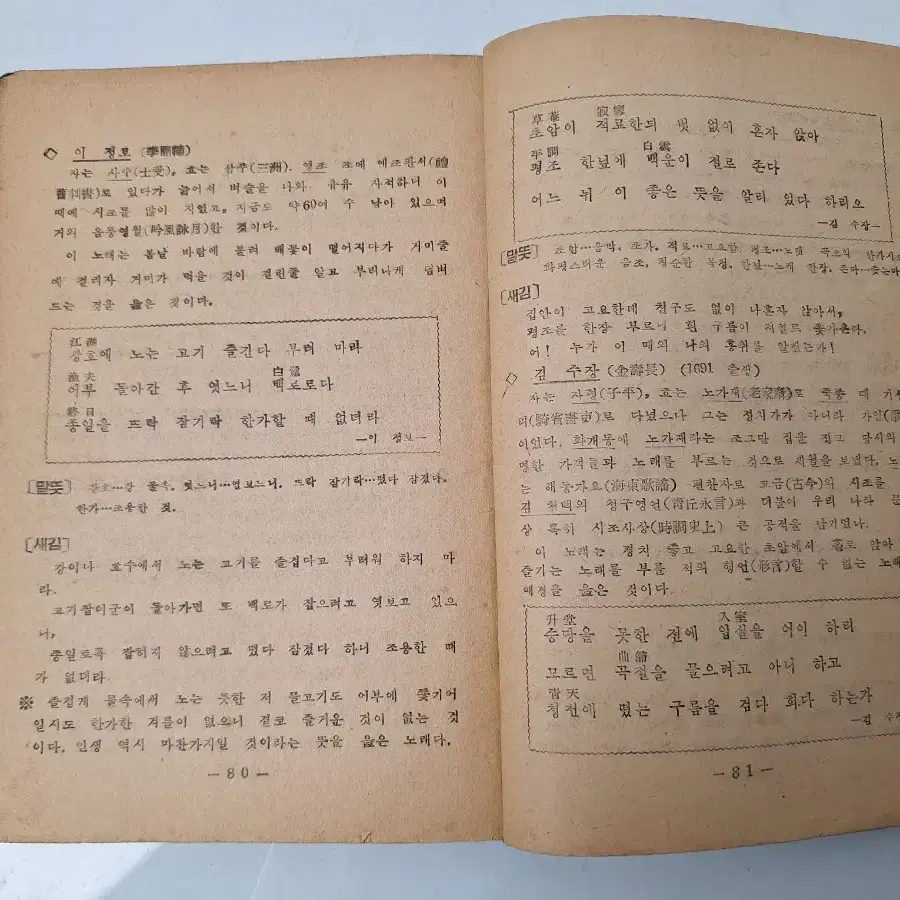 ◇ 이 정보 (李鼎輔)
자는 사수(士受), 호는 삼주(三洲). 영조 조에 예조판서(禮
曹判書)로 있다가 늙어서 벼슬을 나와 유유 자적하니 이
때에 시조를 많이 지었고, 지금도 약60여 수 남아 있으며
거의 음풍영월(吟風詠月)한 것이다.
이 노래는 봄날 바람에 불려 배꽃이 떨어지다가 거미줄
에 걸리자 거미가 먹을 것이 걸린줄 알고 부리나케 덤벼
드는 것을 읊은 것이다.
江湖
강호에 노는 고기 즐긴다 부러 마라
漁夫 白鷺
어부 돌아간 후 엿느니 백로로다
終日
종일을 뜨락 잠기락 한가할 때 없더라
—이 정보—
[말뜻] 강호…강 물속. 엿느니…엿보느니. 뜨락 잠기락…떴다 잠겼다.
한가…조용한 것.
[새김]
강이나 호수에서 노는 고기를 즐겁다고 부러워 하지 마
라.
고기잡이군이 돌아가면 또 백로가 잡으려고 엿보고 있으
니,
종일토록 잡히지 않으려고 떴다 잠겼다 하니 조용한 때
가 없더라.
※ 즐겁게 물속에서 노는 듯한 저 물고기도 어부에 쫓기어
일시도 한가한 겨를이 없으니 결코 즐거운 것이 없는 것
이다. 인생 역시 마찬가지일 것이라는 뜻을 읊은 노래다.
—80—
草菴 寂寥
초암이 적료한듸 벗 없이 혼자 앉아
平調 白雲
평조 한보에 백운이 절로 존다
어느 뉘 이 좋은 뜻을 알리 있다 하리오
—김 수장—
[말뜻] 초암…움막, 초가. 적료…고요함. 평조…노랫 곡조의 한가지로
화평스러운 음조, 평순한 곡정. 한보…노래 한장. 존다…좇는다.
[새김]
집안이 고요한데 친구도 없이 나혼자 앉아서,
평조를 한장 부르니 흰 구름이 저절로 좇가는다.
어! 누가 이 때의 나의 흥취를 알겠는가!
◇ 김 수장 (金壽長) (1691 출생)
자는 자평(子平), 호는 노가재(老歌齋)로 숙종 때 기
리(騎省書吏)로 다녔으나 그는 정치가가 아니라 가인(
이었다. 화개동에 노가재라는 조그만 집을 짓고 당시의
명한 가객들과 노래를 부르는 것으로 세월을 보냈다.
는 해동가요(海東歌謠) 편찬자로 고금(古今)의 시조를
김 천택의 청구영언(靑丘永言)과 더불어 우리 나라
상 특히 시조사상(時調史上) 큰 공적을 남기었다.
이 노래는 경치 좋고 고요한 초암에서 홀로 앉아
즐기는 노래를 부를 적의 형언(形言)할 수 없는 노래
애정을 읊은 것이다.
升堂 入室
승당을 못한 전에 입실을 어이 하리
曲節
모르면 곡절을 물으려고 아니 하고
靑天
청천에 떴는 구름을 검다 희다 하는가
—김 수장
—81—